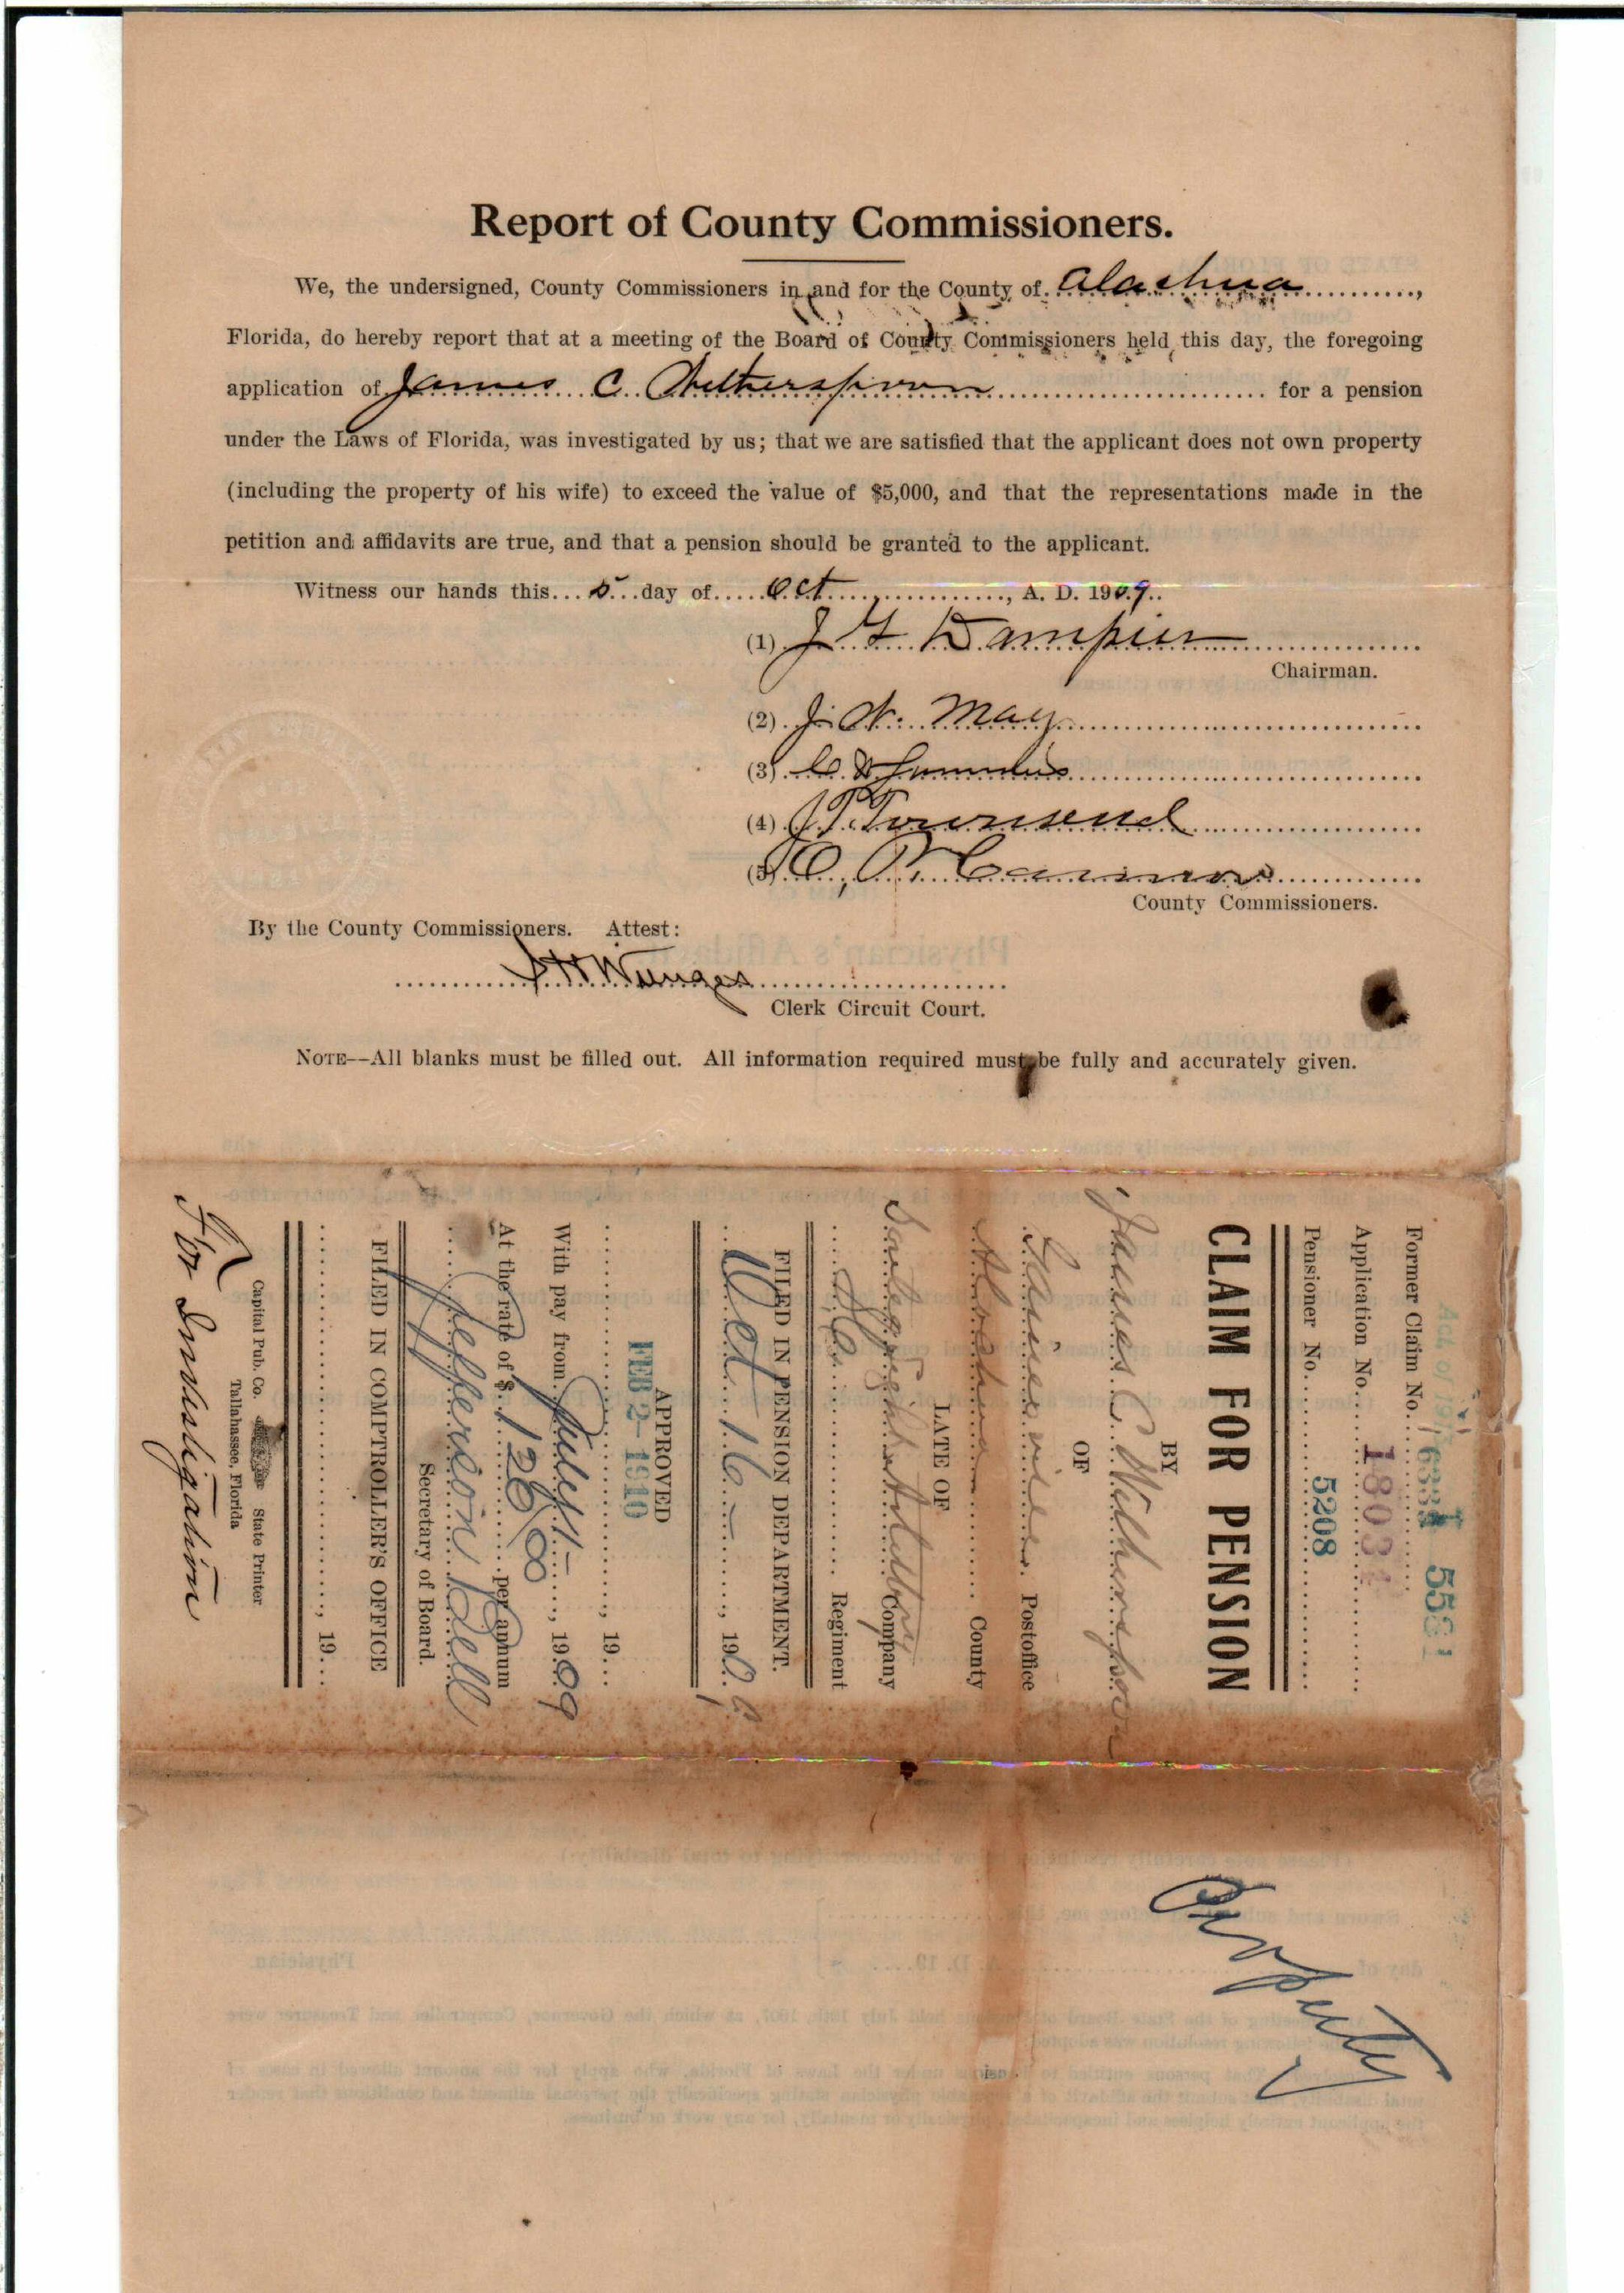 Report of County Commissioners.
We, the undersigned, County Commissioners in and for the County of Alachua,
Florida, do hereby report that at a meeting of the Board of County Commissioners held this day, the foregoing
application of James C Witherspoon for a pension
under the Laws of Florida, was investigated by us; that we are satisfied that the applicant does not own property
(including the property of his wife) to exceed the value of $5,000, and that the representations made in the
petition and affidavits are true, and that a pension should be granted to the applicant.
Witness our hands this 5 day of Oct, A. D. 1909.
(1) J G Dampier
Chairman.
(2) J. W. May
(3)
(4) J T Townsend
(5)
County Commissioners.
By the County Commissioners. Attest:
S H Wienges
Clerk Circuit Court.
NOTE--All blanks must be filled out. All information required must be fully and accurately given.
Act of 19
Former Claim No. 5581
Application No. 1803
Pensioner No. 5208
CLAIM FOR PENSION
BY
James C Witherspoon
OF
Gainesville Postoffice
Alachua County
LATE OF
Light Artillery Company
S.C. Regiment
FILED IN PENSION DEPARTMENT.
Oct 16 - , 190
APPROVED
FEB 2- 1910
, 19
With pay from July 1-, 1909
At the rate of $ 120/00 per annum
Jefferson Bell
Secretary of Board.
FILED IN COMPTROLLER'S OFFICE
, 19
Capital Pub. Co. State Printer
Tallahassee, Florida
For Investigation